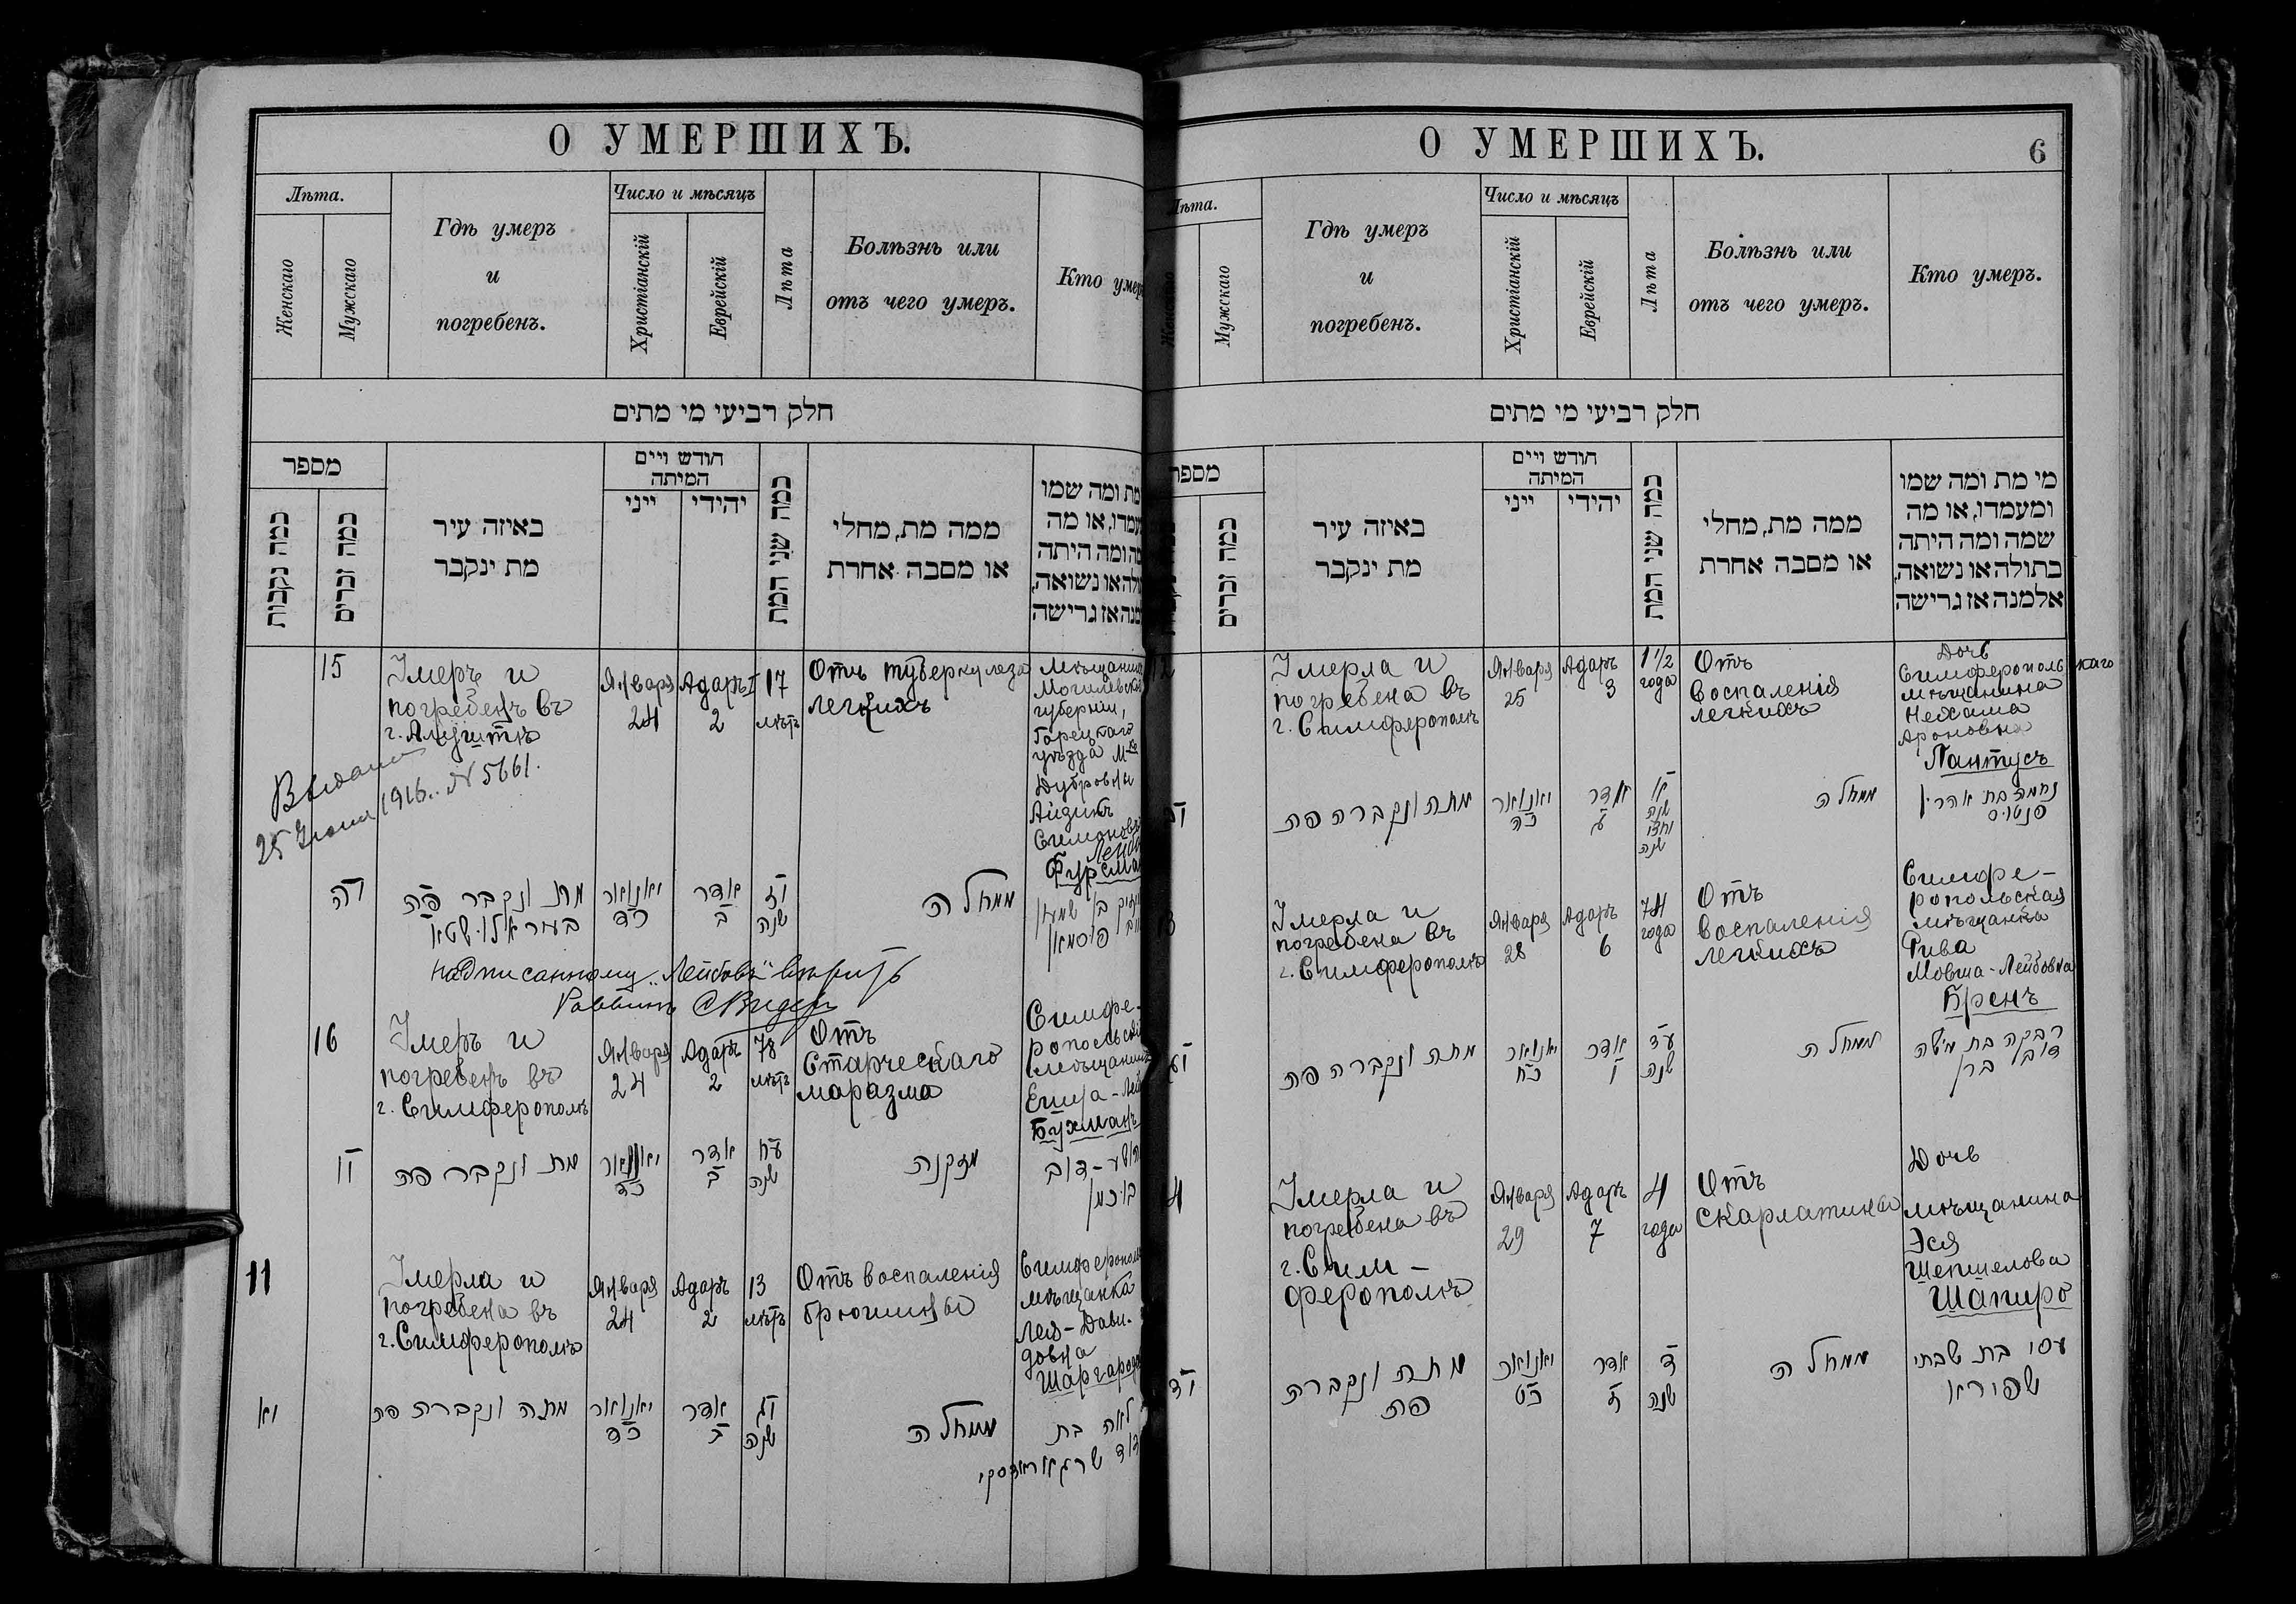 О УМЕРШИХЪ.
Лѣта.
Женскаго
Мужскаго
Гдѣ умеръ
и
погребенъ.
Число и мѣсяцъ
Христіанскій
Еврейскій
Лѣта
Болѣзнь или
отъ чего умеръ.
Кто умеръ
חלק רביעי מי מתים
מספר
כמה נקבות
כמה זכרים
באיזה עיר
מת ינקבר
חודש ויים
המיתה
ייני
יהידי
כמה שני המת
ממה מת, מחלי
או מסבה אחרת
מת ומה שמו
או מה
ומה היתה
או נשואה,
אז גרישה
15
Умеръ и
погребенъ въ
г. Алуштѣ
Января
24
Адаръ I
2
17
лѣтъ
Отъ туберкулеза
легкихъ
Мѣщанинъ
Могилевской
губерніи,
Горецкаго
уѣзда М-ко
Дубровны
Айзикъ
Симоновъ
Лейбовъ
Фурсман
Выдана
25 Іюня 1916 г. № 5661.
מת ונקבר פה
בעיר אלושטא
יאנואר
כד
אדר
ב
יז
שנה
ממחלה
בן שמעון
Надписанному „Лейбовъ" вѣрить
Раввинъ
16
Умеръ и
погребенъ въ
г. Симферополѣ
Января
24
Адаръ
2
78
лѣтъ
Отъ
Старческаго
маразма
Симфе-
ропольскій
мѣщанинъ
Бухманъ
מת ונקבר פה
יאנואר
כד
אדר
ב
עח
שנה
מזקנה
דוב
בוכמן
11
Умерла и
погребена въ
г. Симферополѣ
Января
24
Адаръ
2
13
лѣтъ
Отъ воспаленія
брюшины
Симферопол
мѣщанка
Лея-Дави-
довна
Шаргородс
יא
מתה ונקברת פה
יאנואר
כד
אדר
ב
יג
שנה
ממחלה
לאה בת
דוד
О УМЕРШИХЪ.
6
Лѣта.
Женскаго
Мужскаго
Гдѣ умеръ
и
погребенъ.
Число и мѣсяцъ
Христіанскій
Еврейскій
Лѣта
Болѣзнь или
отъ чего умеръ.
Кто умеръ.
חלק רביעי מי מתים
מספר
כמה זכרים
באיזה עיר
מת ינקבר
חודש ויים
המיתה
ייני
יהידי
כמה שני המת
ממה מת, מחלי
או מסבה אחרת
מי מת ומה שמו
ומעמדו, או מה
שמה ומה היתה
בתולה או נשואה,
אלמנה אז גרישה
12
Умерла и
погребена въ
г. Симферополѣ
Января
25
Адаръ
3
1 1/2
года
Отъ
воспаленія
легкихъ
Дочь
Симферопольскаго
мѣщанина
Нехама
Ароновна
Пантусъ
מתה ונקברה פה
יאנואר
כה
אדר
ג
שנה
וחצי
שנה
ממחלה
נחמה בת אהרין
פנטוס
13
Умерла и
погребена въ
г. Симферополѣ
Января
28
Адаръ
6
74
года
Отъ
воспаленія
легкихъ
Симфе-
ропольская
мѣщанка
Рива
Мовша-Лейбовна
Бренъ
מתה ונקברה פה
יאנואר
כח
אדר
ו
עד
שנה
ממחלה
רבקה בת משה
ברן
4
Умерла и
погребена въ
г. Сим-
ферополѣ
Января
29
Адаръ
7
4
года
Отъ
скарлатины
Дочь
мѣщанина
Эся
Шепшелова
Шапиро
יד
מתה ונקברת
פה
יאנואר
כט
אדר
ז
ד
שנה
ממחלה
עסי בת שבתי
שפירא